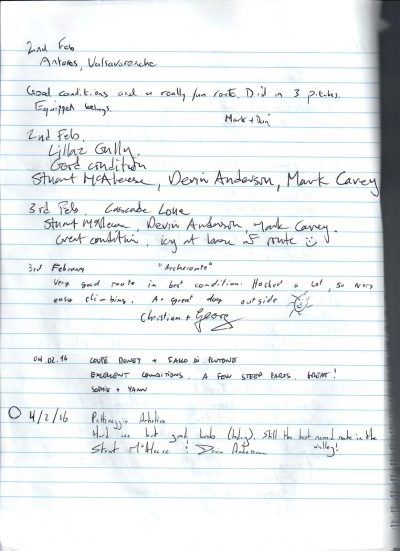 2nd Feb
Antares, Valsavarenche
Good conditions and a really fun route. Did in 3 pitches.
Equipped belays.
Mark + Dan
2nd Feb.
Lillaz Gully.
Good condition
Stuart McAleese, Devin Anderson, Mark Carey
3rd Feb Cascade Lone
Stuart McAleese, Devin Anderson, Mark Carey.
Great condition, icy at base of route
3rd February "
Very good route in best condition. Hacked a lot, so very
easy climbing. A great day outside
Christian + Georg
04.02.16 COUPE DONEY + DI PLUTONE
EXCELLENT CONDITIONS. A FEW STEEP PARTS. GREAT!
SOPHIE + YANN
4/2/16 Pattinaggio Artistico
Hard ice but good Still the best named route in the
valley!
Stuart McAleese & Devin Anderson